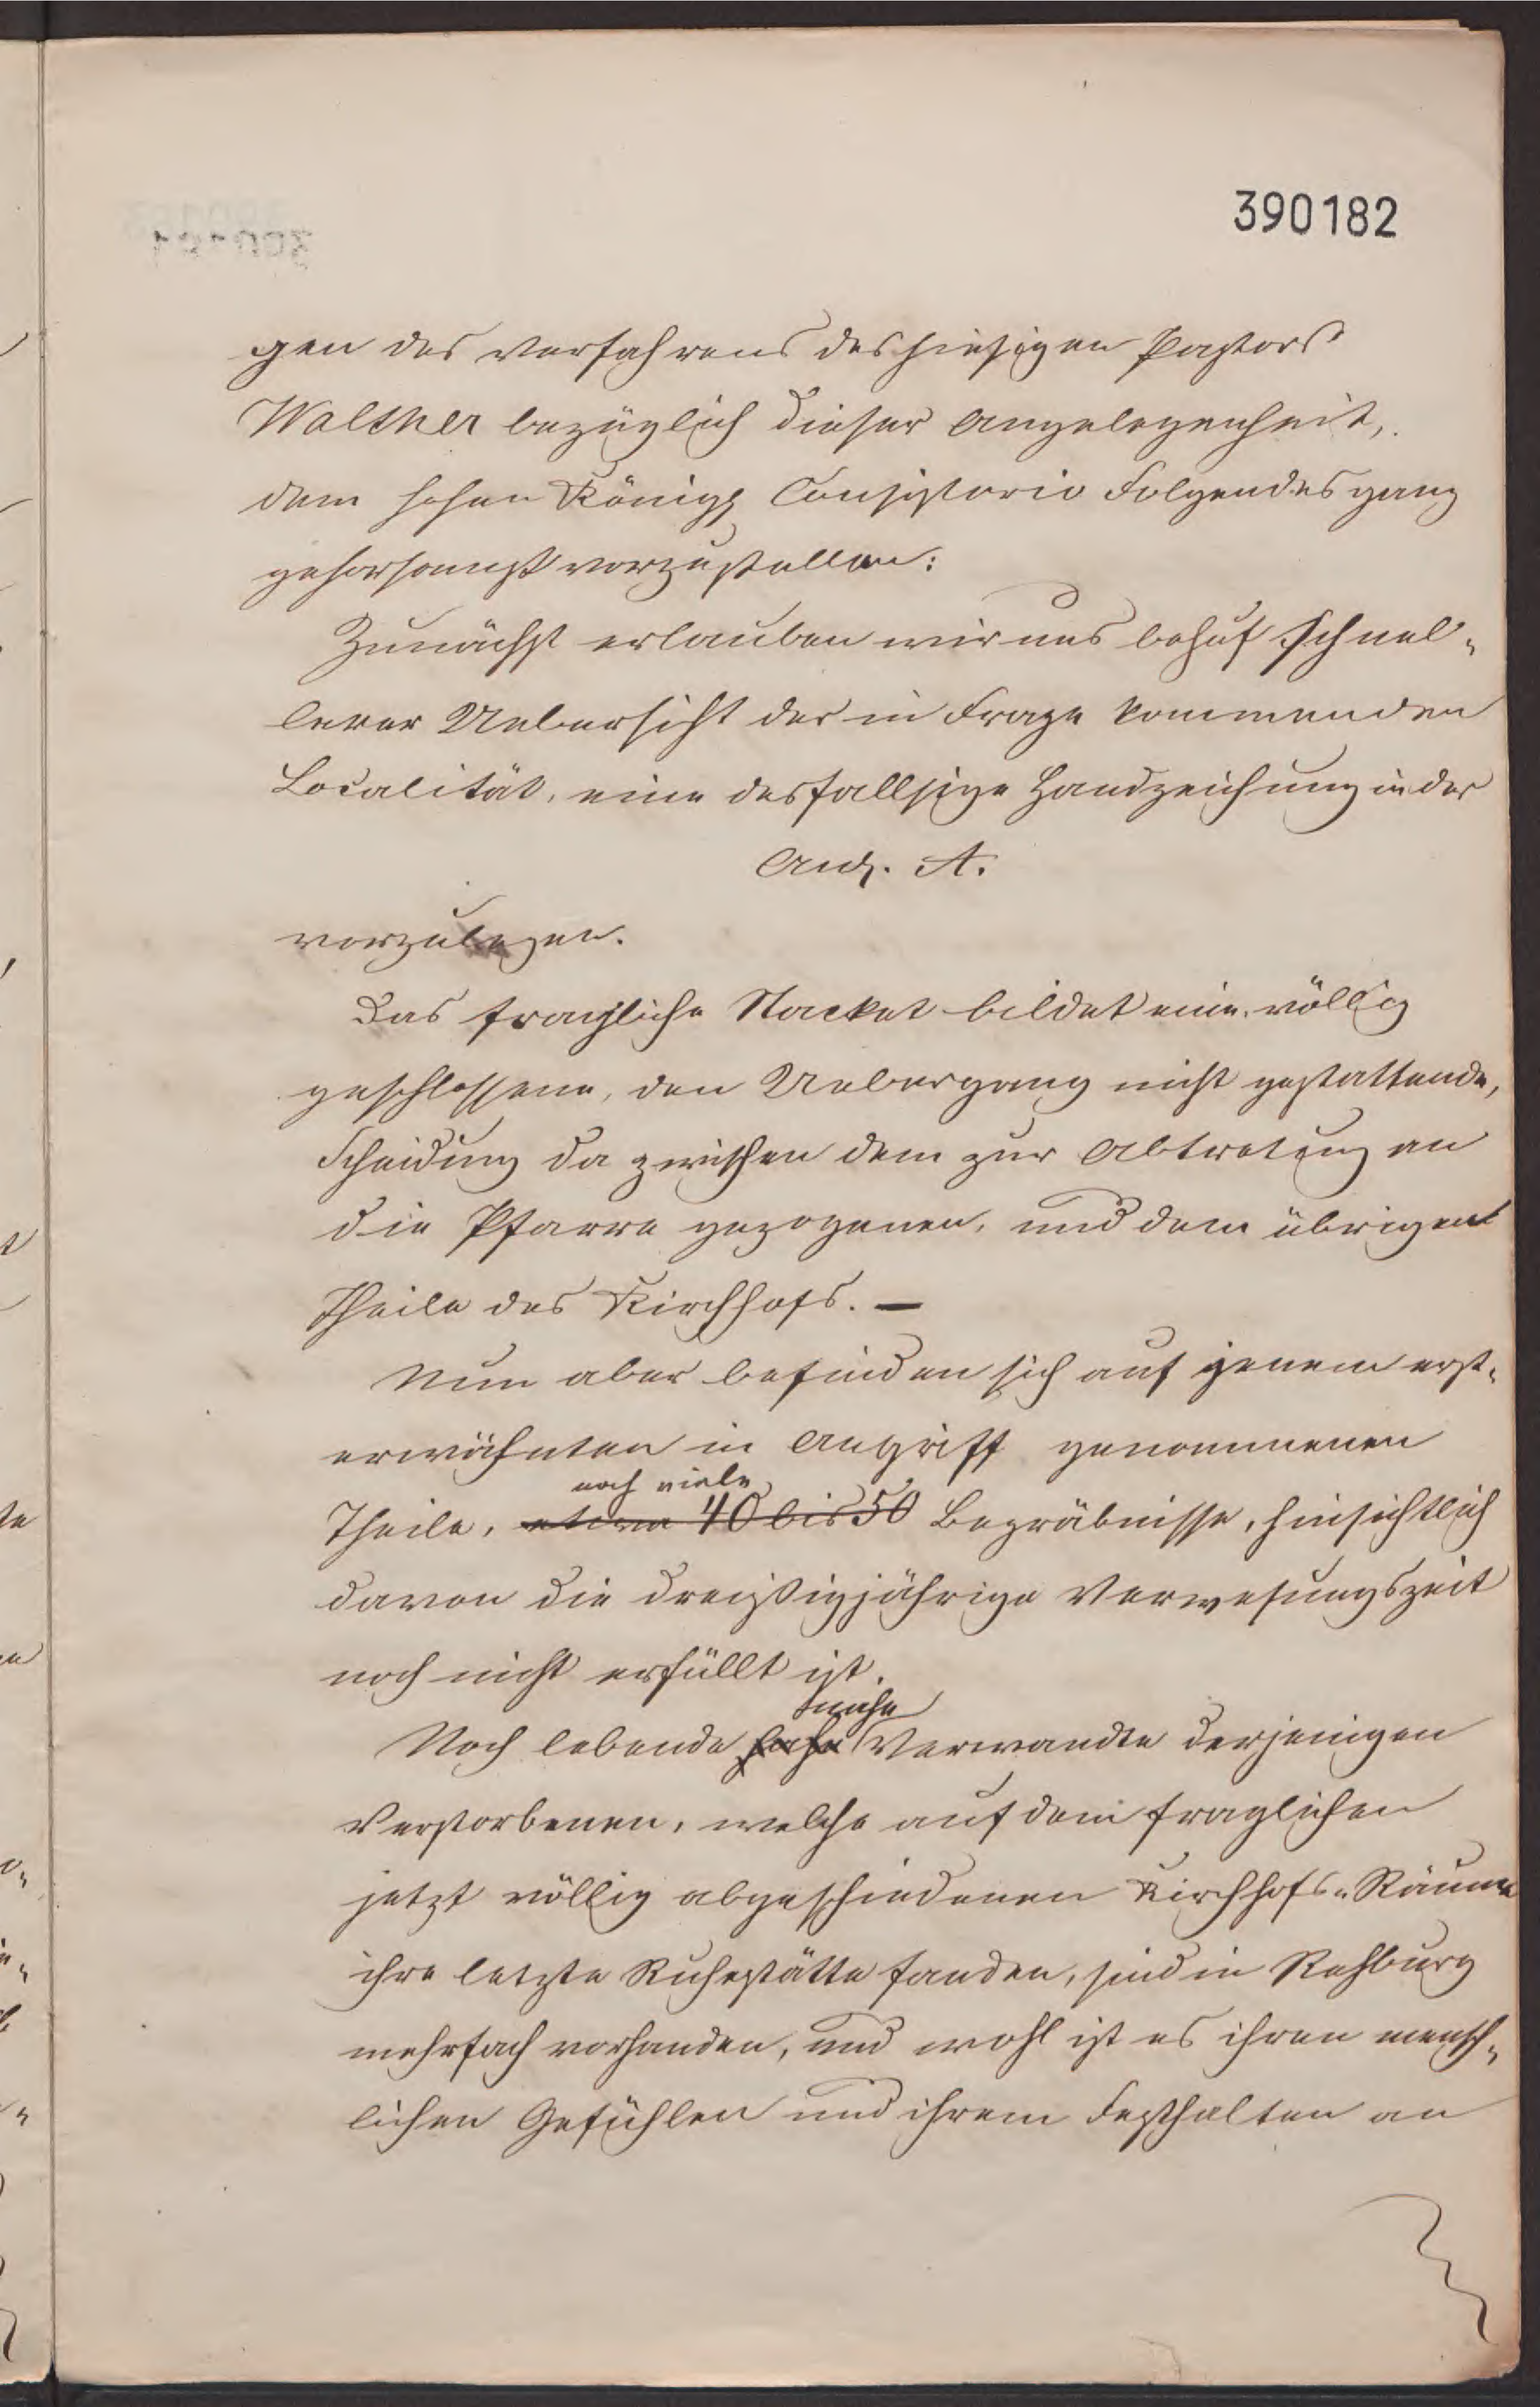 390182
gen des Verfahrens des hiesigen Pastors
Walther bezüglich dieser Angelegenheit,
dem hohen Königl Consistorio Folgendes ganz
gehorsamst vorzustellen:
Zunächst erlauben wir uns behuf schnel-
lerer Uebersicht der in Frage kommenden
Localität, eine desfallsige Handzeichung in der
Anl. A.
vorzulegen.
Das fragliche Stacket bildet eine völlig
geschlossene, den Uebergang nicht gestattende,
Scheidung da zwischen dem zur Abtretung an
die Pfarre gezogenen, und dem übrigen
Theile des Kirchhofs. —
Nun aber befinden sich auf jenem erst-
erwähnten in Angriff genommenen
noch viele
Theile, etwa 40 bis 50 Begräbnisse, hinsichtlich
davon die dreißigjährige Verwesungszeit
noch nicht erfüllt ist.
nahe
Noch lebende Verwandte derjenigen
Verstorbenen, welche auf dem fraglichen
jetzt völlig abgeschiedenen Kirchhofs-Räume
ihre letzte Ruhestätte fanden, sind in Rehburg
mehrfach vorhanden, und wohl ist es ihren mensch-
lichen Gefühlen und ihrem Festhalten an